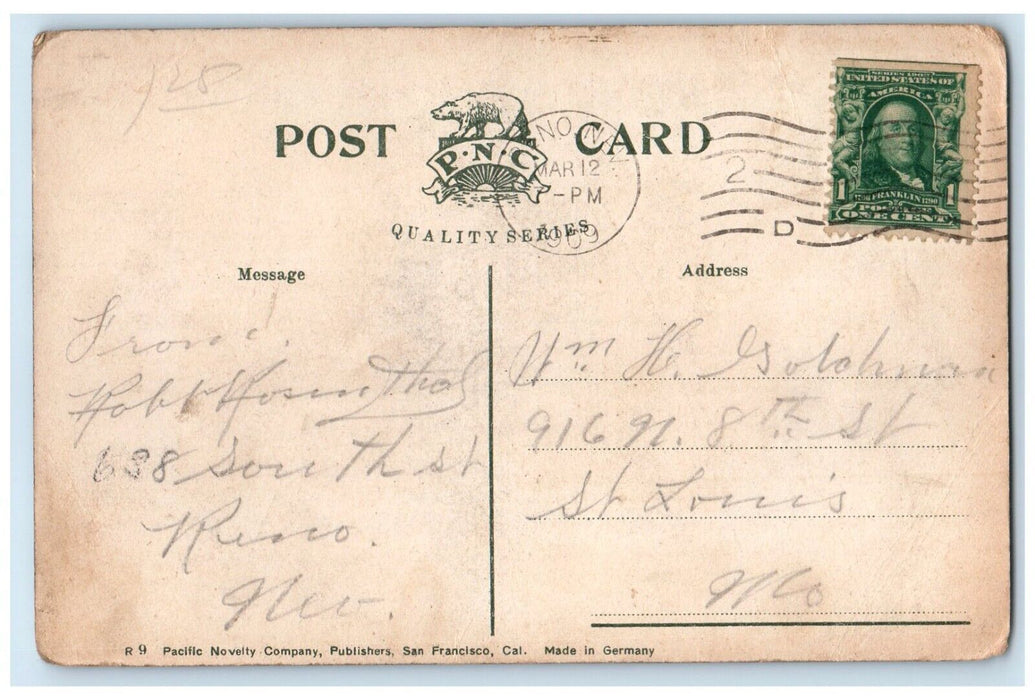 128
POST CARD
P·N·C
QUALITY SERIES
NO, N
MAR 12
-PM
1909
2
D
SERIES 1902
UNITED STATES OF
AMERICA
1 1
1706 FRANKLIN 1790
POSTAGE
ONE CENT
Message
Address
From.
Robt Rosenthal
638 South st
Reno.
Nev.
Wm H. Goldman
916 N. 8th St
St Louis
Mo
R 9 Pacific Novelty Company, Publishers, San Francisco, Cal. Made in Germany